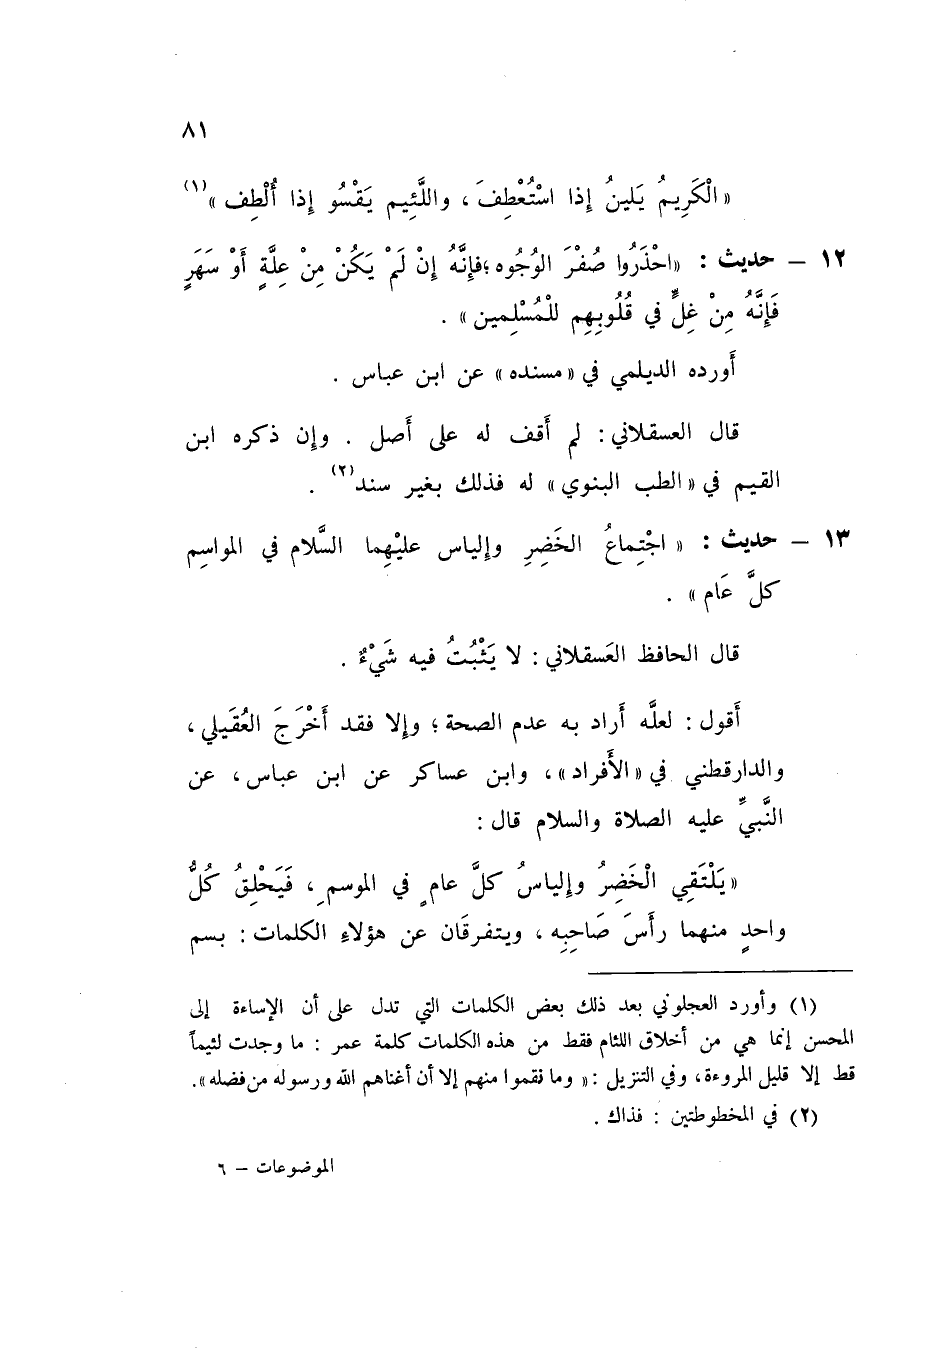 ٨١
« الْكَرِيمُ يَلِينُ إِذا اسْتُعْطِفَ ، واللَّئِيم يَقْسُو إِذا أُلْطِف »(١)
١٢ – حديث : «احْذَرُوا صُفْرَ الوُجُوه ؛فإِنَّهُ إِنْ لَمْ يَكُنْ مِنْ عِلَّةٍ أَوْ سَهَرٍ
فَإِنَّهُ مِنْ غِلٍّ في قُلُوبِهِم للْمُسْلِمين » .
أَورده الديلمي في «مسنده» عن ابن عباس .
قال العسقلاني : لم أَقف له على أَصل . وإِن ذكره ابن
القيم في « الطب البنوي » له فذلك بغير سند(٢) .
١٣ – حديث : « اجْتِماعُ الخَضِرِ وإِلياس عليْهِما السَّلام في المواسِم
كلَّ عَام » .
قال الحافظ العَسقلاني : لا يَثْبُتُ فيه شَيْءٌ .
أَقول : لعلَّه أَراد به عدم الصحة ؛ وإِلا فقد أَخْرَجَ العُقَيلي ،
والدارقطني في «الأَفراد» ، وابن عساكر عن ابن عباس ، عن
النَّبيِّ عليه الصلاة والسلام قال :
« يَلْتَقِي الْخَضِرُ وإِلياسُ كلَّ عامٍ في الموسمِ ، فَيَحْلِقُ كُلُّ
واحدٍ منهما رأْسَ صَاحِبِه ، ويتفرقَان عن هؤلاءِ الكلمات : بسم
(١) وأورد العجلوني بعد ذلك بعض الكلمات التي تدل على أن الإساءة إلى
المحسن إنما هي من أخلاق اللئام فقط من هذه الكلمات كلمة عمر : ما وجدت لئيماً
قط إلا قليل المروءة ، وفي التنزيل : « وما نقموا منهم إلا أن أغناهم الله ورسوله من فضله ».
(٢) في المخطوطتين : فذاك .
الموضوعات – ٦